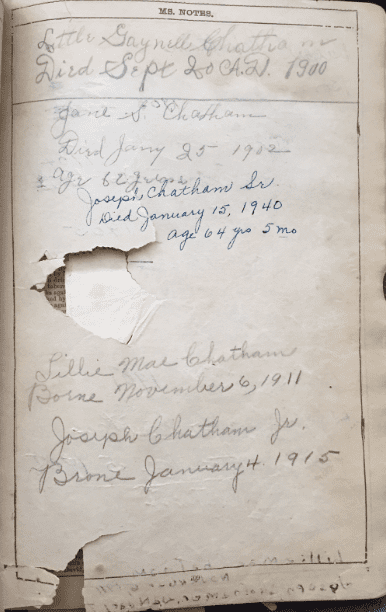 MS. NOTES.
Little Gaynell Chatham
Died Sept 20 A.D. 1900
S. Chatham
Died Jany 25 1902
Age 62 years
Joseph Chatham Sr.
Died January 15, 1940
age 64 yrs 5 mo
Lillie Mae Chatham
Borne November 6, 1911
Joseph Chatham Jr.
Brone January 4 1915